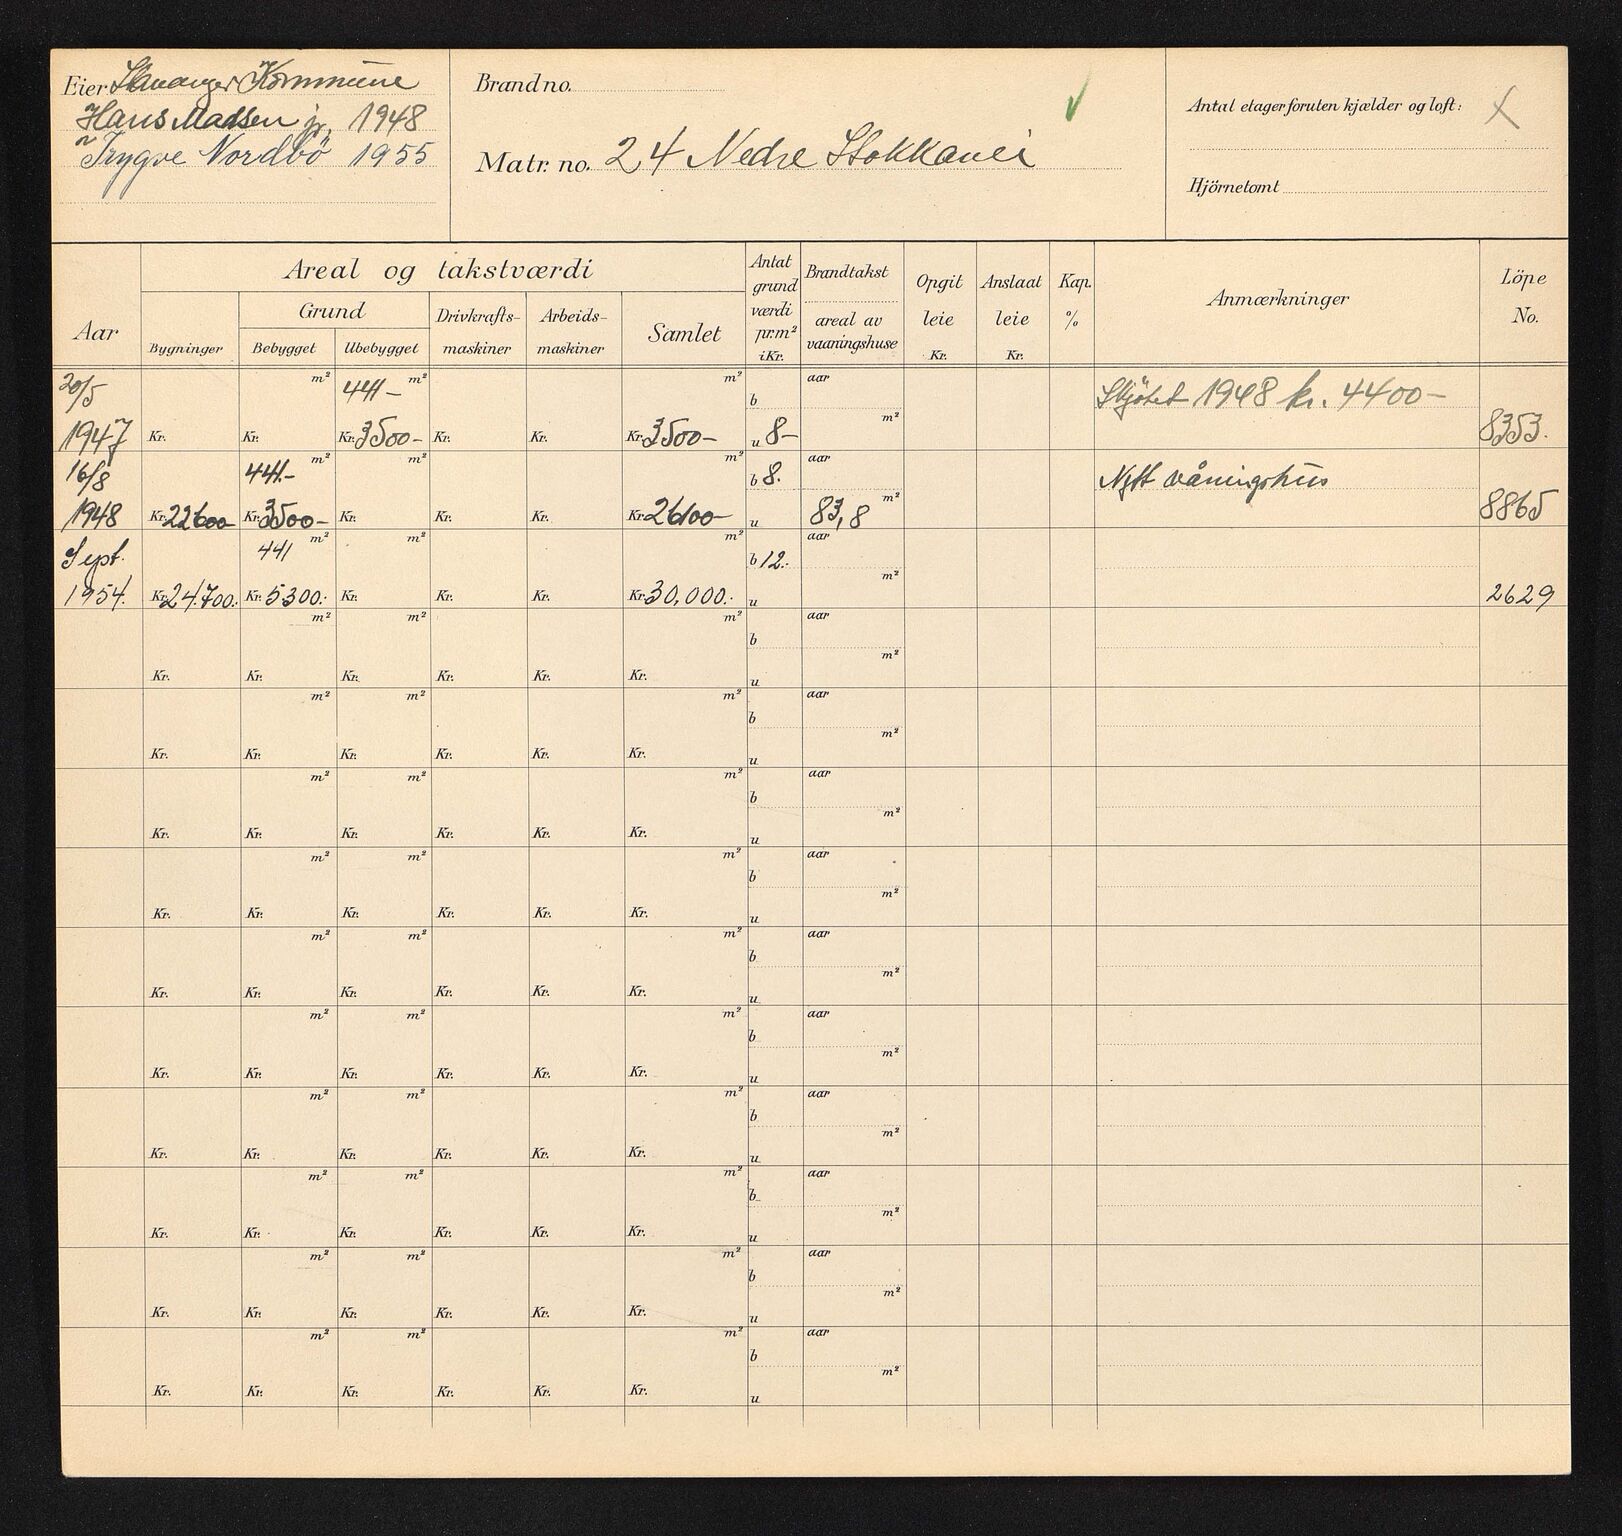 Eier Stavanger Kommune
Hans Madsen jr. 1948
" Trygve Nordbö 1955
Brand no.
Matr. no. 24 Nedre Stokkavei
Antal etager foruten kjælder og loft: X
Hjörnetomt
Aar
Areal og takstværdi
Bygninger
Grund
Bebygget
Ubebygget
Drivkrafts-
maskiner
Arbeids-
maskiner
Samlet
Antat
grund
værdi
pr. m²
i Kr.
Brandtakst
areal av
vaaningshuse
Opgit
leie
Kr.
Anslaat
leie
Kr.
Kap.
%
Anmærkninger
Löpe
No.
20/5 m² 441- m² m² b aar Skjötet 1948 kr. 4400-
1947 Kr. Kr. Kr. 3500- Kr. Kr. Kr. 3500- u 8- m² 8353.
16/8 441.- m² m² m² b 8. aar Nytt våningshus
1948 Kr. 22600 Kr. 3500- Kr. Kr. Kr. Kr. 26100- u 83,8 m² 8865
Sept. 441 m² m² m² b 12.- aar
1954. Kr. 24.700.- Kr. 5300.- Kr. Kr. Kr. Kr. 30,000.- u m² 2629
m² m² m² b aar
Kr. Kr. Kr. Kr. Kr. Kr. u m²
m² m² m² b aar
Kr. Kr. Kr. Kr. Kr. Kr. u m²
m² m² m² b aar
Kr. Kr. Kr. Kr. Kr. Kr. u m²
m² m² m² b aar
Kr. Kr. Kr. Kr. Kr. Kr. u m²
m² m² m² b aar
Kr. Kr. Kr. Kr. Kr. Kr. u m²
m² m² m² b aar
Kr. Kr. Kr. Kr. Kr. Kr. u m²
m² m² m² b aar
Kr. Kr. Kr. Kr. Kr. Kr. u m²
m² m² m² b aar
Kr. Kr. Kr. Kr. Kr. Kr. u m²
m² m² m² b aar
Kr. Kr. Kr. Kr. Kr. Kr. u m²
m² m² m² b aar
Kr. Kr. Kr. Kr. Kr. Kr. u m²